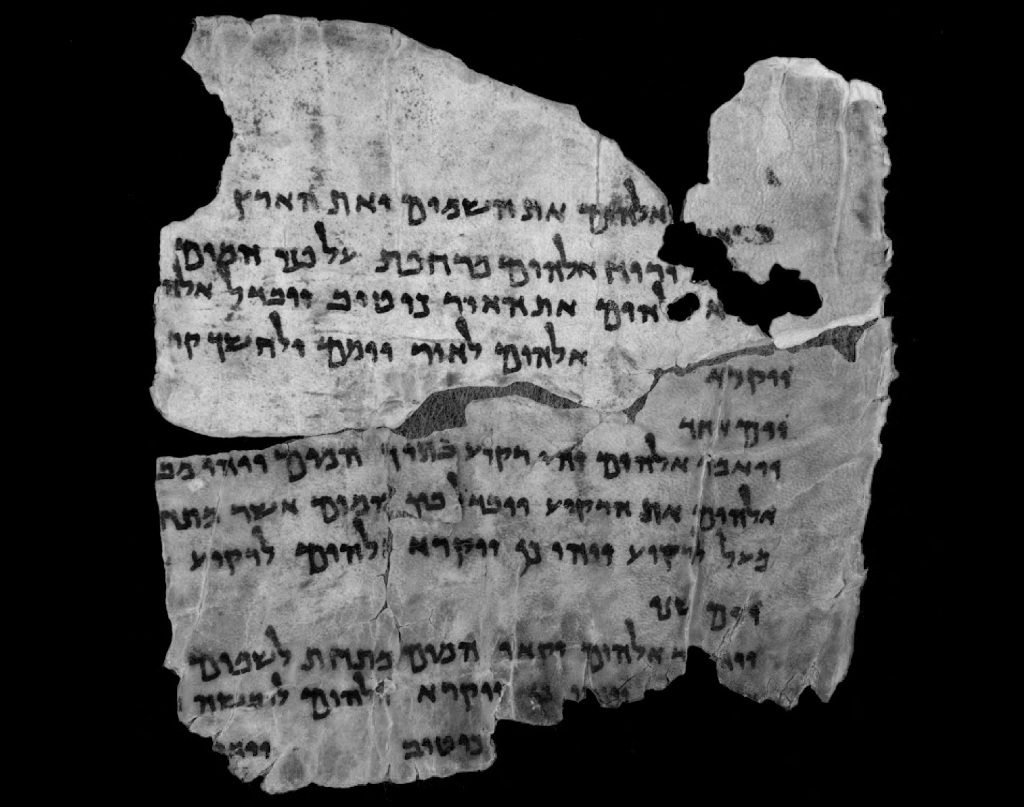 אלהים את השמים ואת הארץ
ורוח אלהים מרחפת על פני המים
אלהים את האור כי טוב ויבדל אלה
אלהים לאור יומם ולחשך קר
ויקרא
יום אחד
ויאמר אלהים יהי רקיע בתוך המים ויהי מב
אלהים את הרקיע ויבדל בין המים אשר מתח
מעל לרקיע ויהי כן ויקרא אלהים לרקיע
יום שני
אלהים יקאו המים מתחת לשמים
כן ויקרא אלהים ליבשה
כי טוב ויאמ